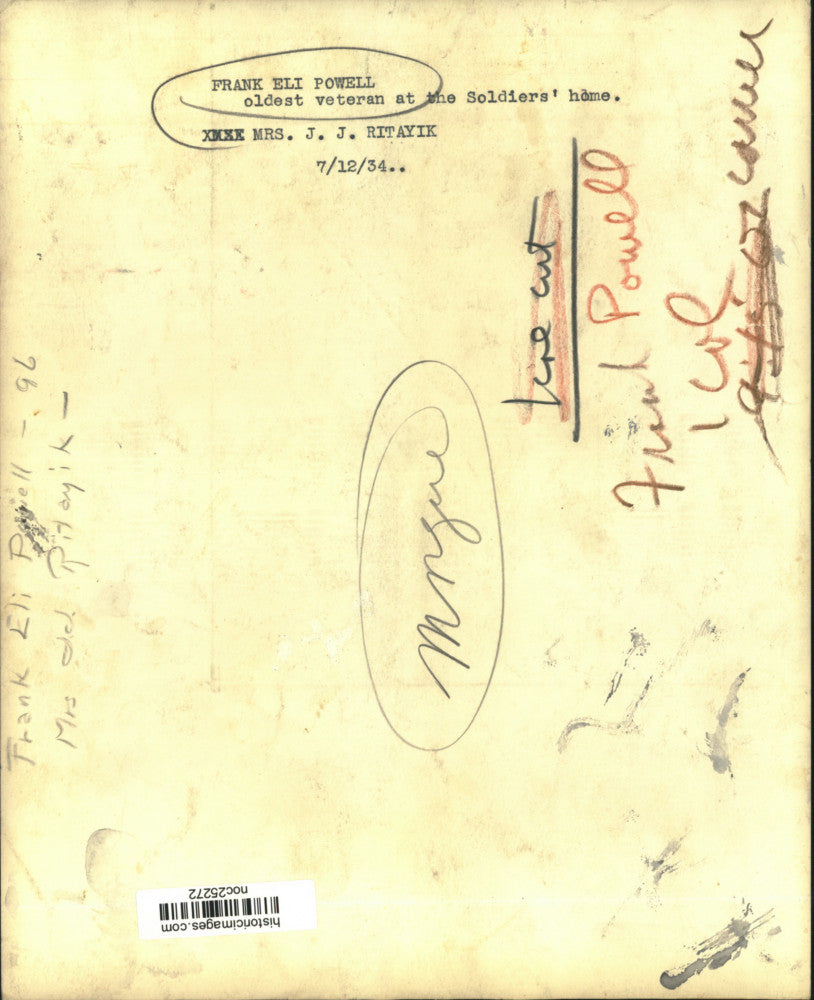 FRANK ELI POWELL
oldest veteran at the Soldiers' home.
XXXX MRS. J. J. RITAYIK
7/12/34..
Frank Powell
1 Col
Frank Eli Powell - 96
Mrs JJ Ritayik -
Morgue
historicimages.com
noc25272